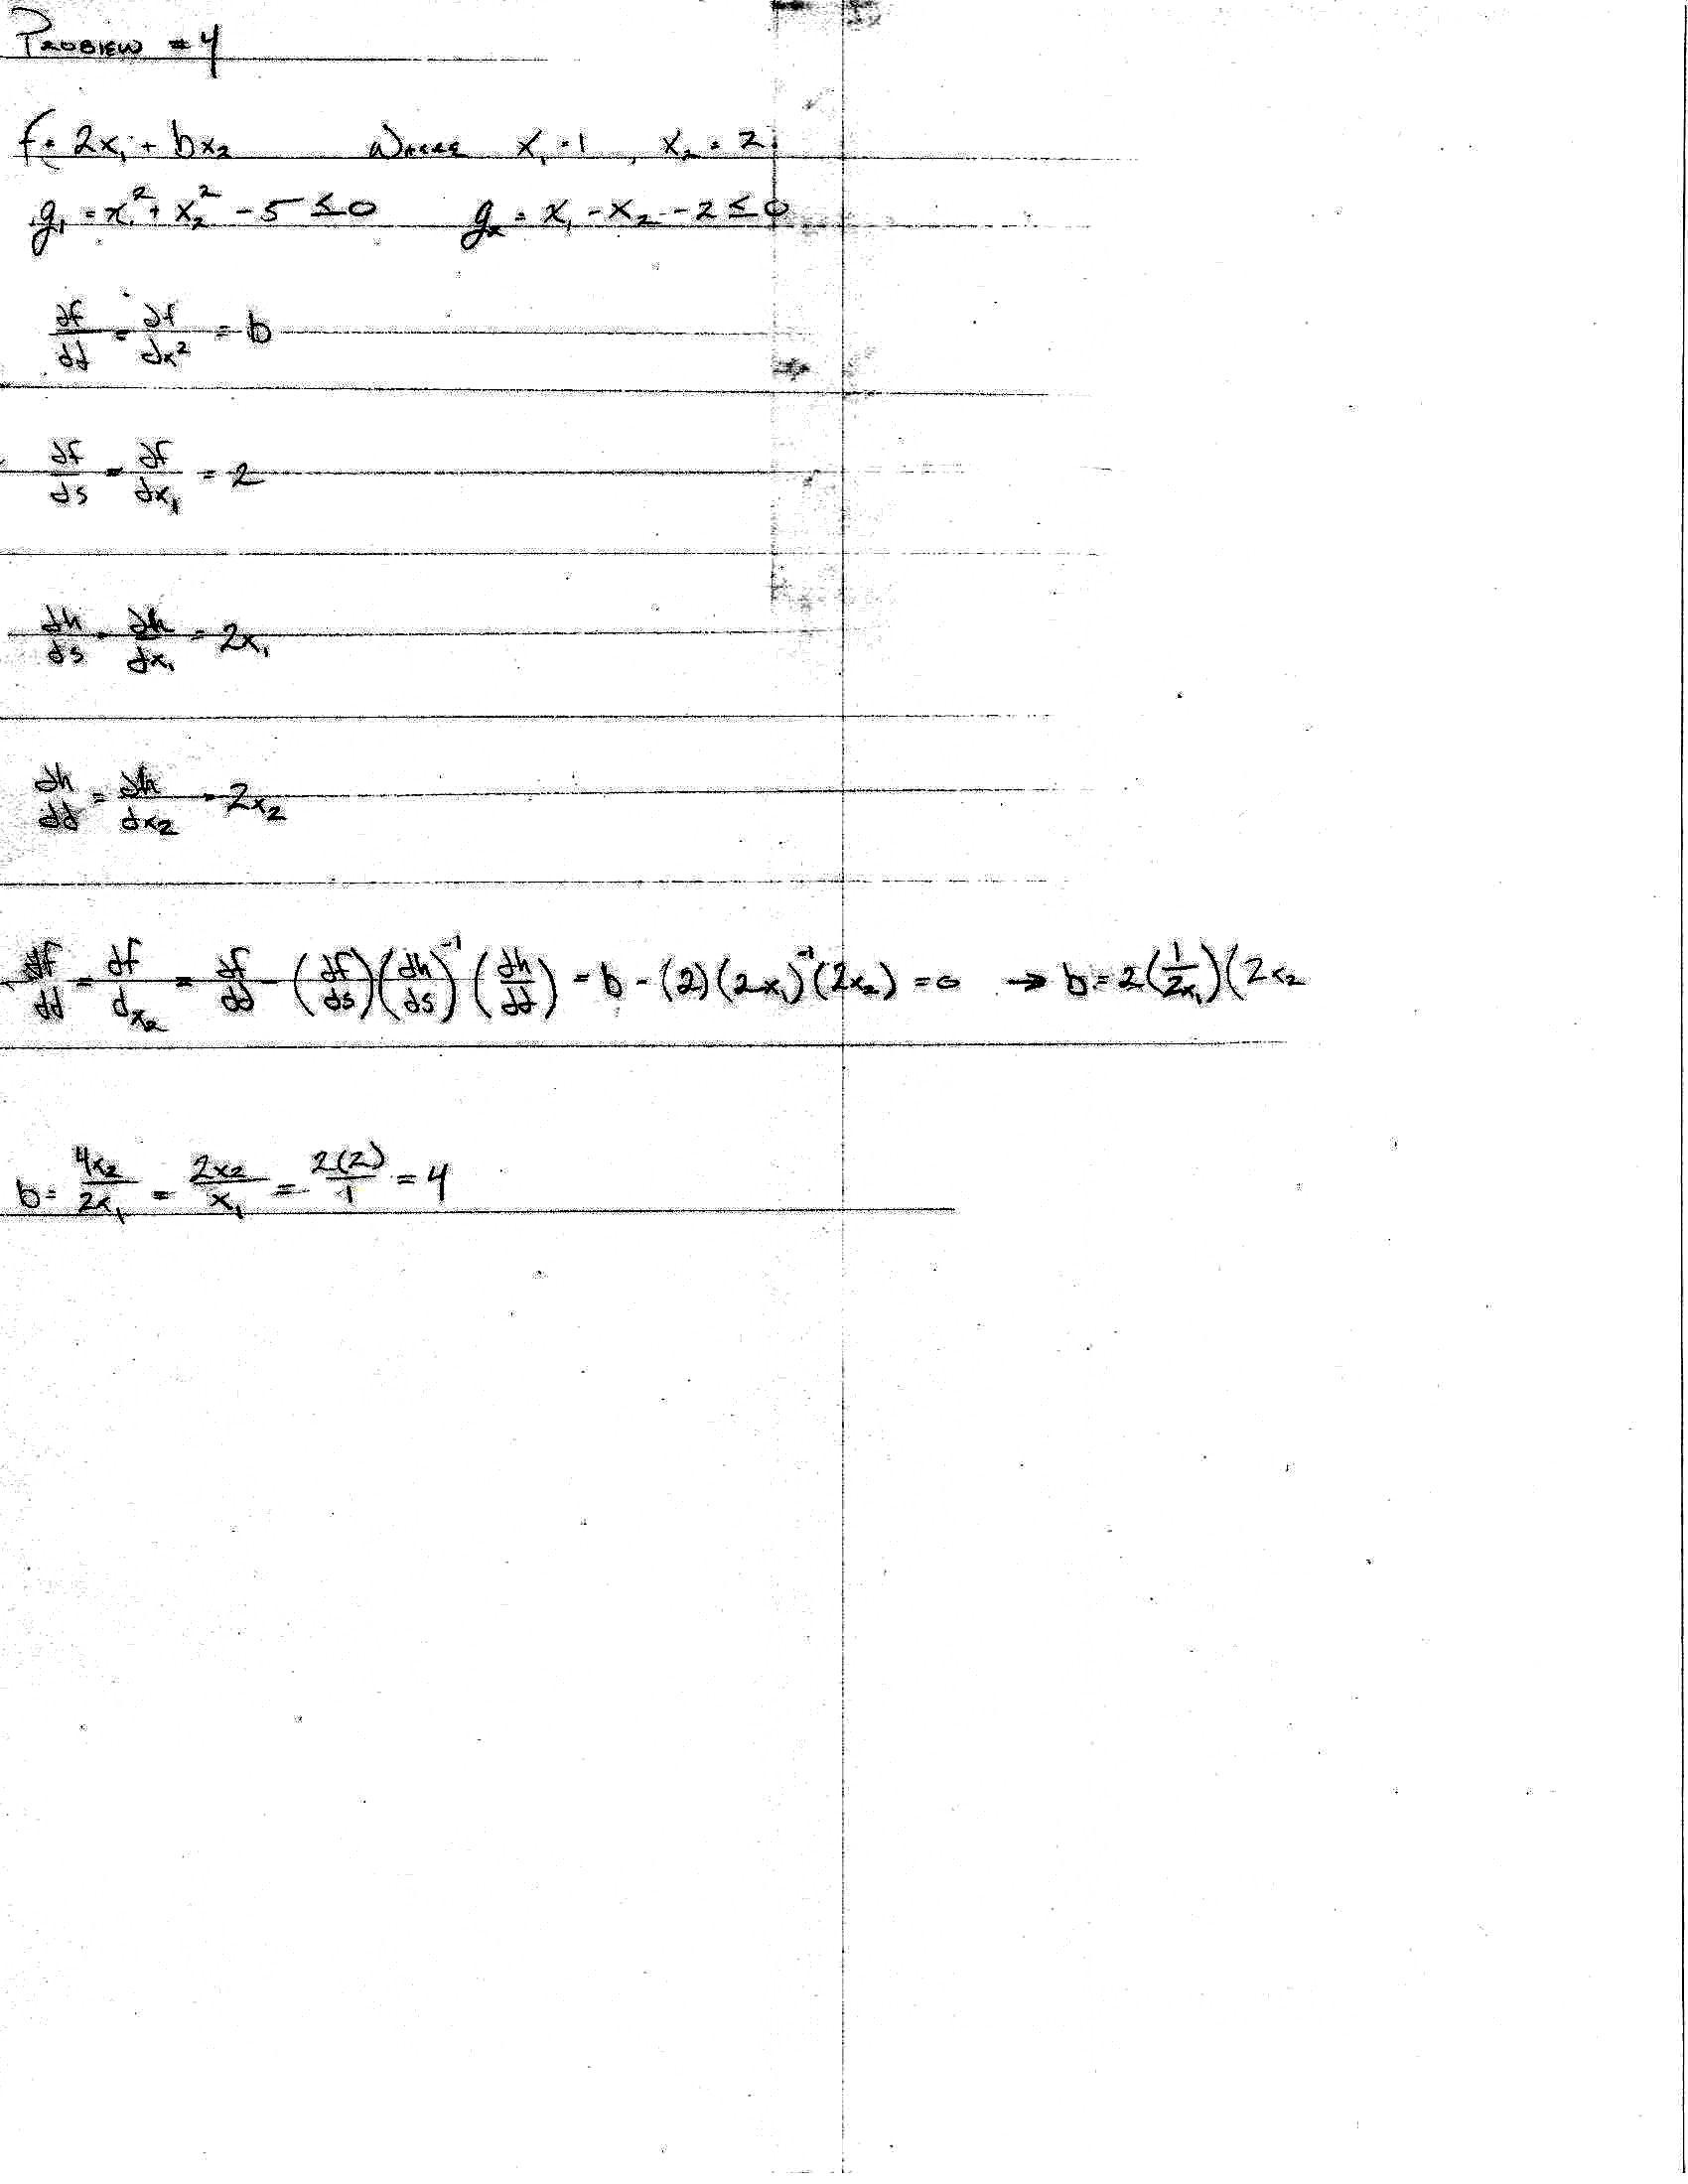 PROBLEM #4
f = 2x₁ + bx₂ WHERE x₁ = 1 , x₂ = 2
g₁ = x₁² + x₂² - 5 ≤ 0 g₂ = x₁ - x₂ - 2 ≤ 0
∂f/∂d = ∂f/∂x² = b
∂f/∂s = ∂f/∂x₁ = 2
∂h/∂s = ∂h/∂x₁ = 2x₁
∂h/∂d = ∂h/∂x₂ = 2x₂
∂f/∂d = df/dx₂ = ∂f/∂d - (∂f/∂s)(∂h/∂s)⁻¹(∂h/∂d) = b - (2)(2x₁)⁻¹(2x₂) = 0 → b = 2(1/2x₁)(2x₂
b = 4x₂/2x₁ = 2x₂/x₁ = 2(2)/1 = 4